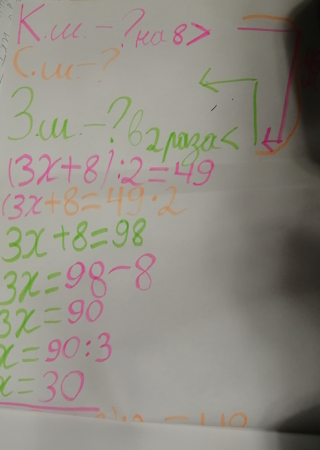 К.ш. - ? на 8 >
С.ш - ?
З.ш. - ? в 2 раза <
(3x+8):2=49
(3x+8=49·2
3x+8=98
3x=98-8
3x=90
x=90:3
x=30